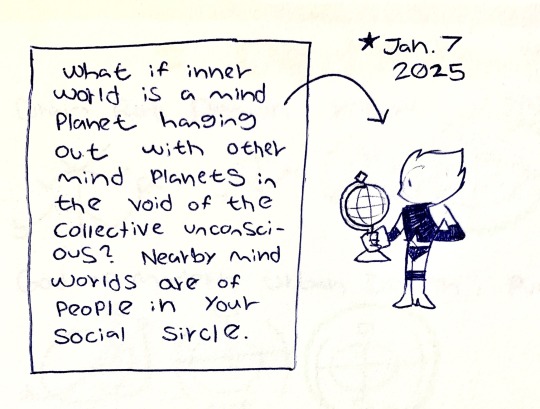 ★ Jan. 7
2025
What if inner
world is a mind
Planet hanging
out with other
mind Planets in
the void of the
Collective unconsci-
ous? Nearby mind
worlds are of
People in Your
Social Sircle.